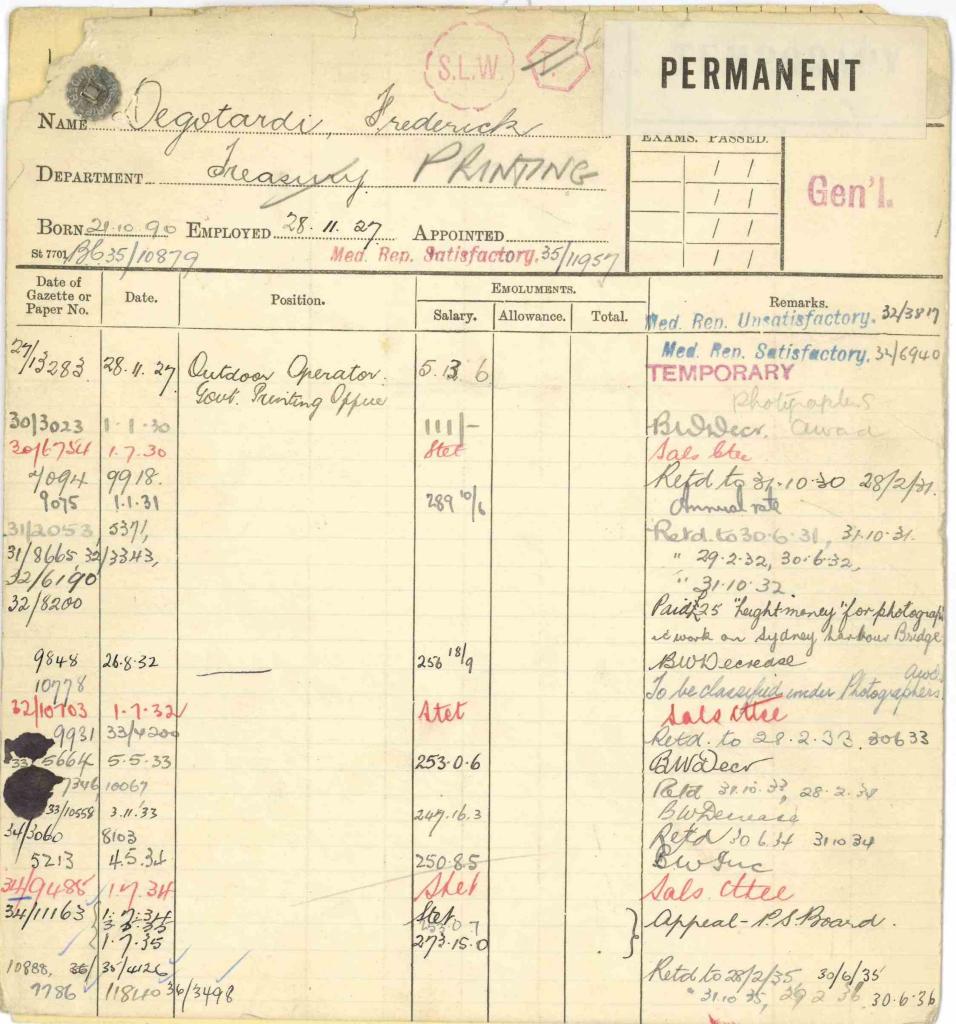 S.L.W. T.
PERMANENT
NAME Degotardi, Frederick
EXAMS. PASSED.
DEPARTMENT Treasury PRINTING
Gen'l.
BORN 21.10.90 EMPLOYED 28.11.27 APPOINTED
St 7701 B635/10879 Med. Rep. Satisfactory. 35/11957
Date of Gazette or Paper No. Date. Position. EMOLUMENTS. Salary. Allowance. Total. Remarks.
Med. Rep. Unsatisfactory. 32/3817
Med. Rep. Satisfactory. 32/6940
27/13283 28.11.27 Outdoor Operator. 5.13.6 TEMPORARY
Govt. Printing Office
Photographers
30/3023 1.1.30 111/- BWDecr. Award
30/6754 1.7.30 Stet Sals Ctee
7094 9918. Retd to 31.10.30 28/2/31.
9075 1.1.31 289 10/6 Annual rate
31/2053 5371, Retd. to 30.6.31, 31.10.31.
31/8665, 32/3343, " 29.2.32, 30.6.32,
32/6190 " 31.10.32.
32/8200 Paid £25 "height money" for photograph
ic work on Sydney Harbour Bridge
9848 26.8.32 256 18/9 BWDecrease
10778 To be classified under Photographers Awd.
32/10703 1.7.32 Stet Sals Cttee
9931 33/4200 Retd. to 28.2.33. 30633
33 5664 5.5.33 253.0.6 BWDecr
7346 10067 Retd 31.10.33, 28.2.34
33/10558 3.11.33 247.16.3 BWDecrease
34/3060 8103 Retd 30 6.34 31 10 34
5213 4.5.34 250.8.5 BW Inc
34/9485 1.7.34 Stet Sals Cttee
34/11163 1.7.34 Stet Appeal - P.S. Board.
1.7.35 273.15.0
10888, 35/4126 Retd to 28/2/35 30/6/35
7786 11840 36/3498 " 31.10 35, 29 2 36 30.6.36